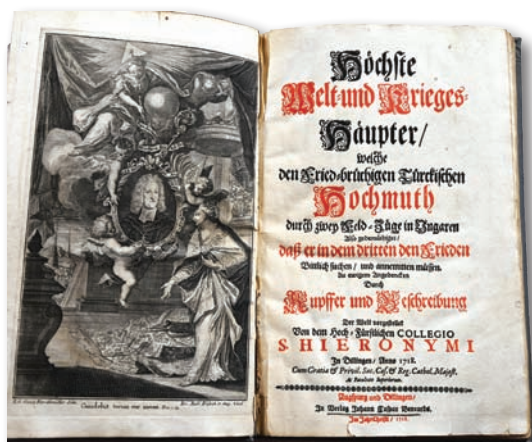 Höchste
Welt-und Krieges-
Häupter/
welche
den Fried-brüchigen Türckischen
Hochmuth
durch zwey Feld-Züge in Ungaren
Also gedemüthiget/
daß er in dem dritten den Frieden
Bittlich suchen/ und annemmen müssen.
Zu ewigem Angedencken
Durch
Kupffer und Beschreibung
Der Welt vorgestellt
Von dem Hoch-Fürstlichen COLLEGIO
S. HIERONYMI
In Dillingen/ Anno 1718.
Cum Gratia & Privil. Sac. Cæs. & Reg. Cathol. Majest.
Ac Facultate Superiorum.
Augspurg und Dillingen/
In Verlag Johann Caspar Bencards.
Im Jahr Christi/ 1718.